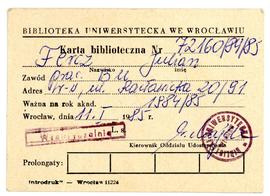 BIBLIOTEKA UNIWERSYTECKA WE WROCŁAWIU
Karta biblioteczna Nr 72160/84/85
Fercz Julian
Nazwisko imię
Zawód prac. BU
Adres W-w, ul. 20/91
Ważna na rok akad. 1984/85
Wrocław, dnia 11. I 1985 r.
L. s.
Kierownik Oddziału Udostępniania
Prolongaty:
"Introdruk" — Wrocław 11224